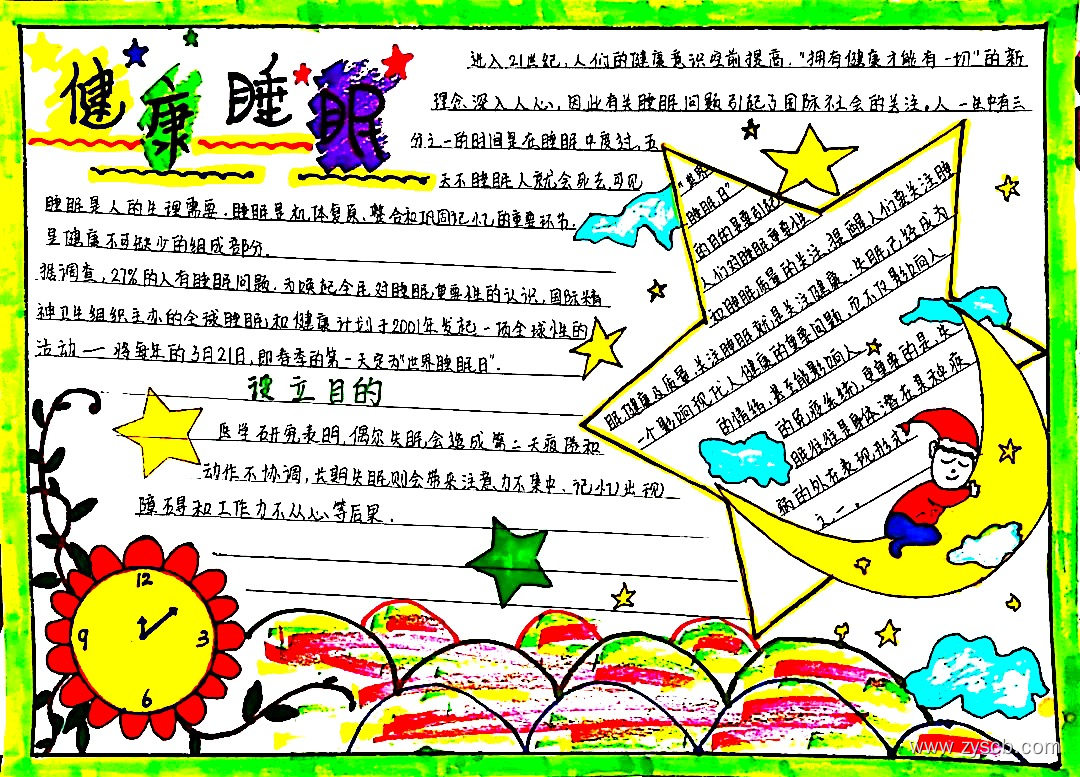 健康睡眠
进入21世纪，人们的健康意识空前提高，“拥有健康才能有一切”的新
理念深入人心，因此有关睡眠问题引起了国际社会的关注。人一生中有三
分之一的时间是在睡眠中度过，五
天不睡眠人就会死去，可见
睡眠是人的生理需要，睡眠是机体复原、整合和巩固记忆的重要环节，
是健康不可缺少的组成部分。
据调查，27%的人有睡眠问题，为唤起全民对睡眠重要性的认识，国际精
神卫生组织主办的全球睡眠和健康计划于2001年发起一项全球性的
活动——将每年的3月21日，即春季的第一天定为“世界睡眠日”.
设立目的
医学研究表明，偶尔失眠会造成第二天疲倦和
动作不协调，长期失眠则会带来注意力不集中、记忆出现
障碍和工作力不从心等后果.
“世界
睡眠日”
的目的是要引起
人们对睡眠重要性
和睡眠质量的关注，提醒人们要关注睡
眠健康及质量，关注睡眠就是关注健康，失眠已经成为
一个影响现代人健康的重要问题，而不仅影响人
的情绪，甚至能影响人
的免疫系统，更重要的是，失
眠往往是身体潜在某种疾
病的外在表现形式
之一。
12
3
6
9
www.zyscb.com